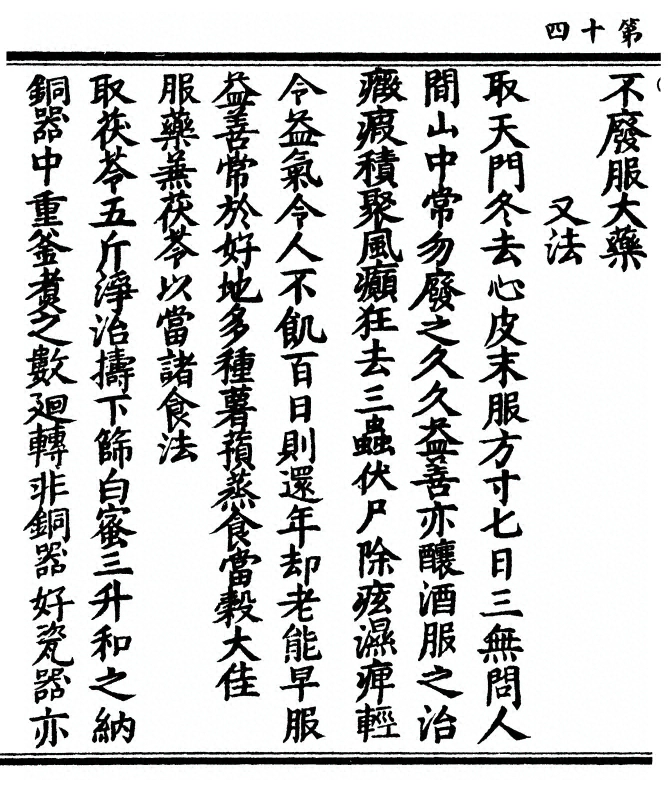 第十四
不廢服大藥
又法
取天門冬去心皮末服方寸七日三無問人
間山中常勿廢之久久益善亦釀酒服之治
癥瘕積聚風癲狂去三蟲伏尸除痃濕痺輕
令益氣令人不飢百日則還年却老能早服
益善常於好地多種薯蕷蒸食當穀大佳
服藥兼茯苓以當諸食法
取茯苓五斤淨治擣下篩白蜜三升和之納
銅器中重釜煮之數廻轉非銅器好瓷器亦